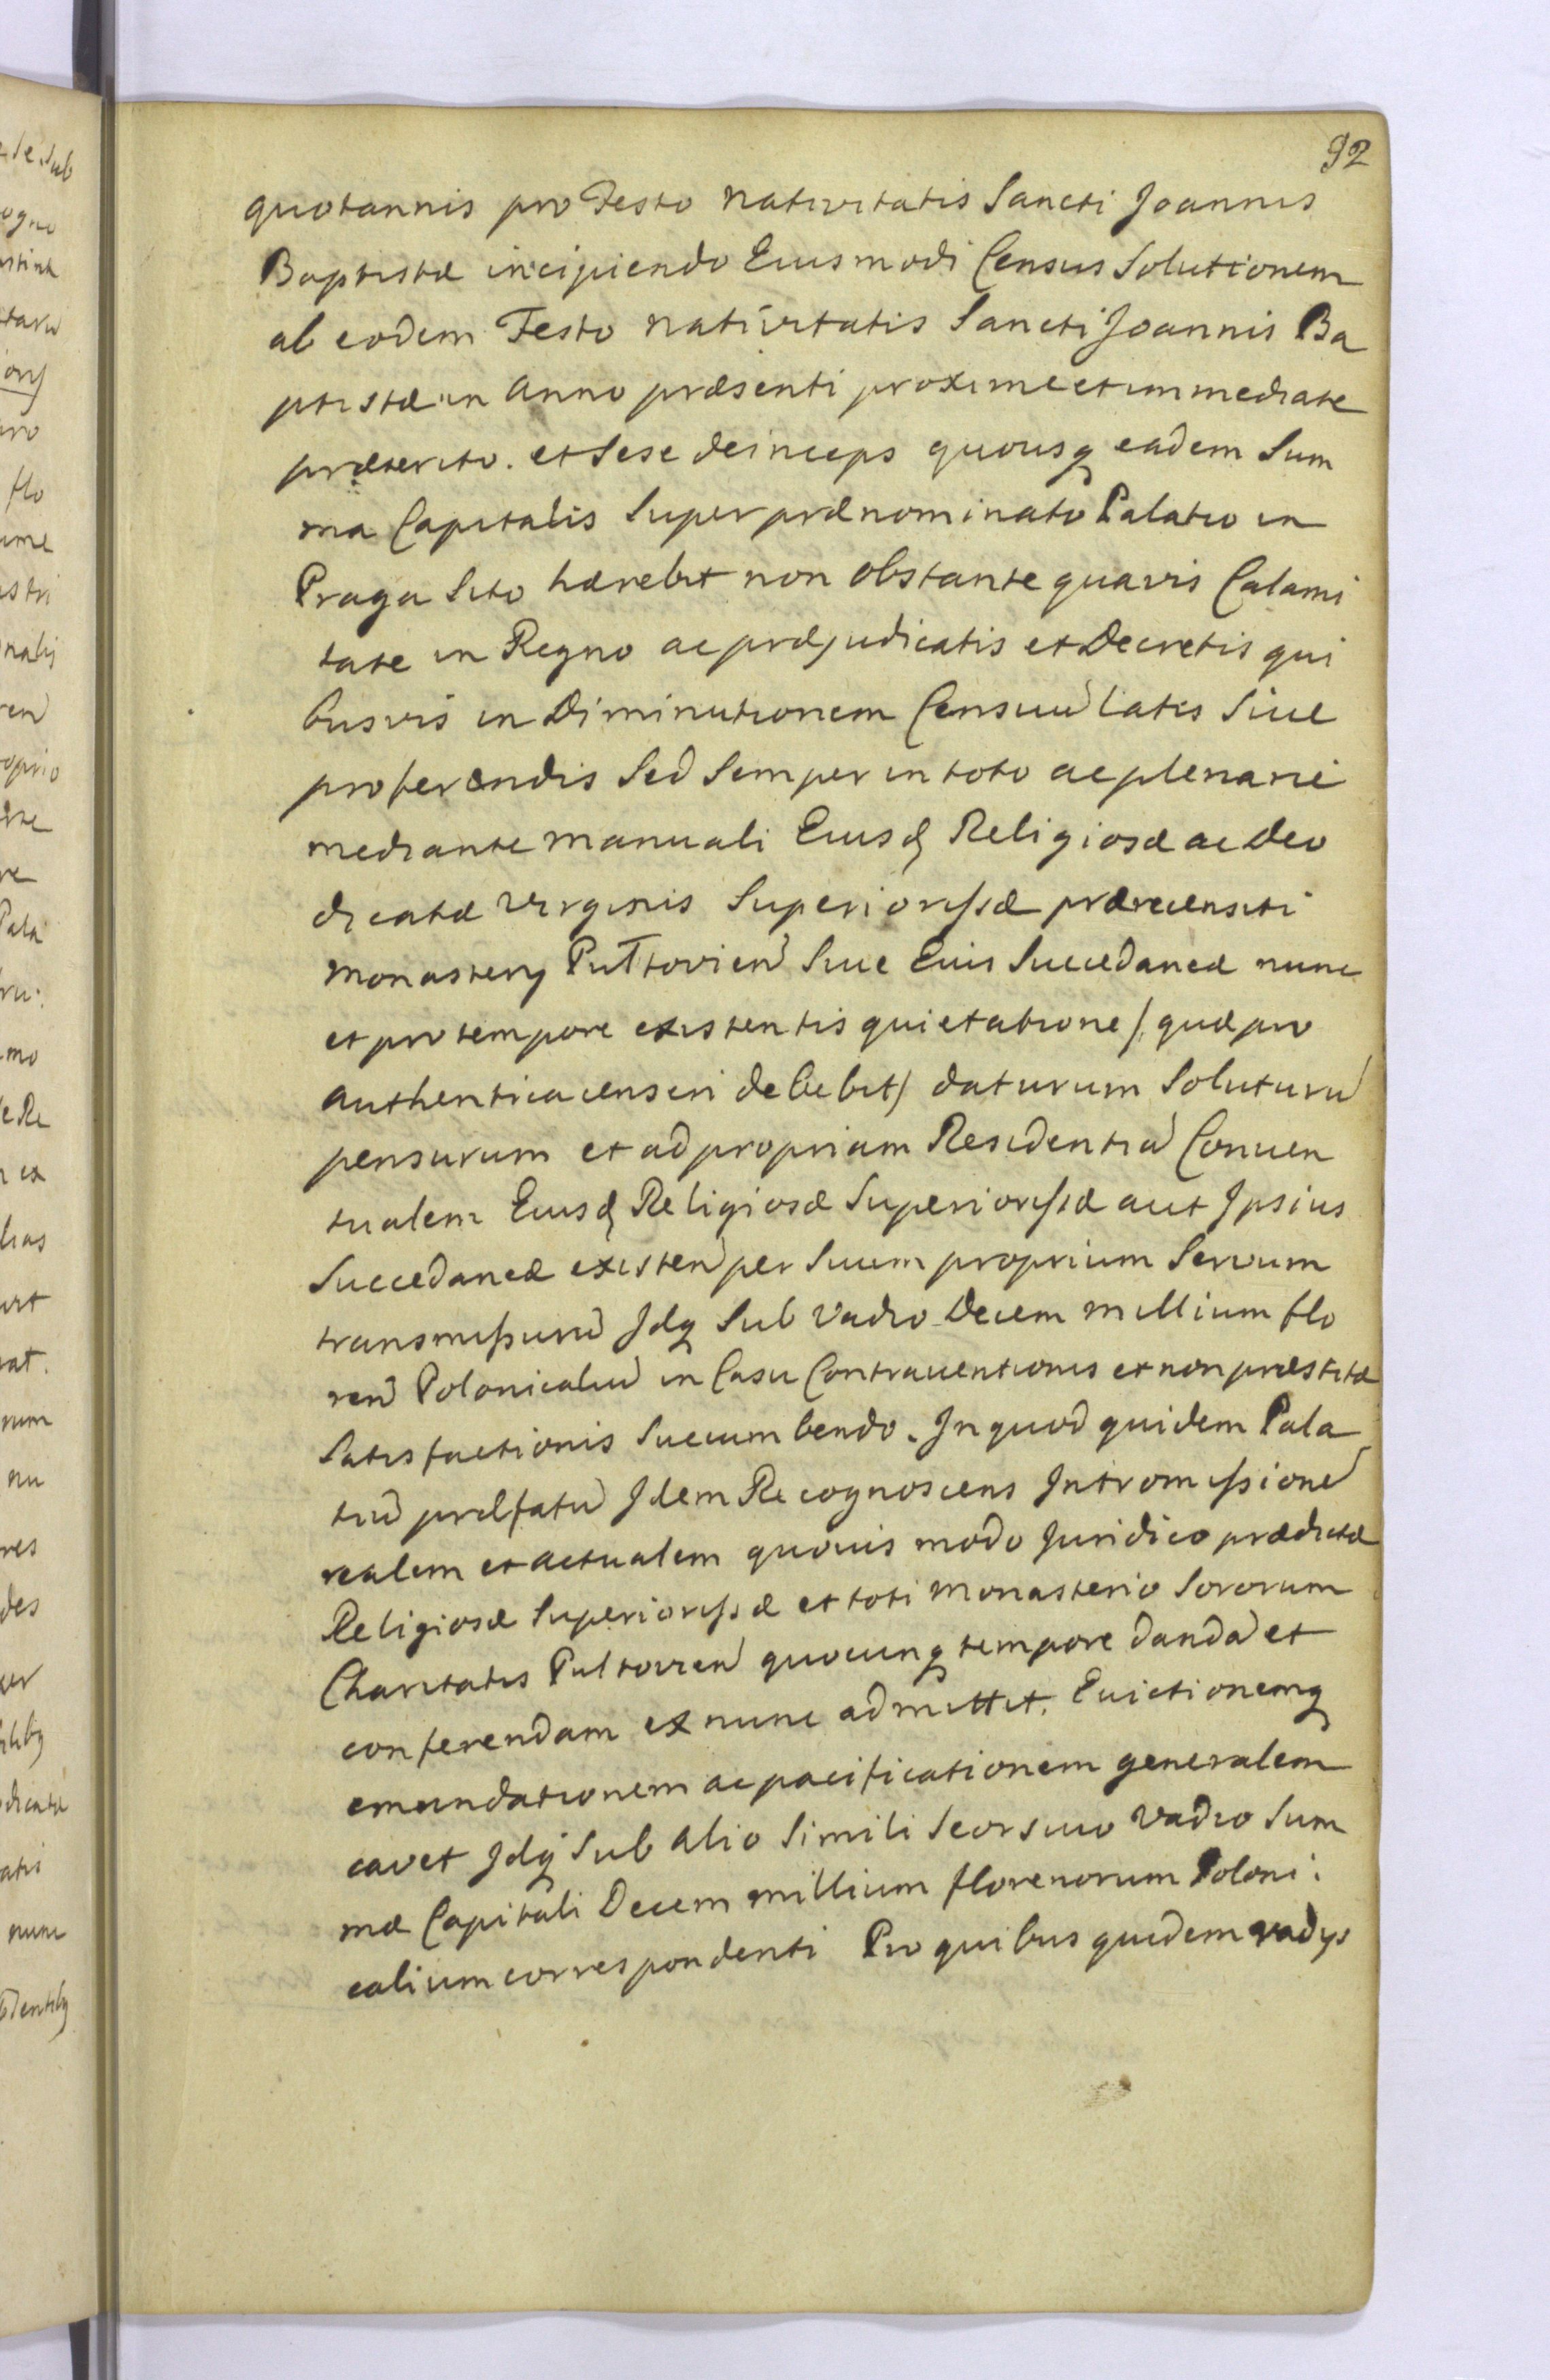 92
quotannis pro Festo Nativitatis Sancti Joannis
Baptistæ incipiendo Eiusmodi Census Solutionem
ab eodem Festo Nativitatis Sancti Joannis Ba
ptistæ in Anno præsenti proxime et immediate
præterito. et Sese deinceps quousq eadem Sum
ma Capitalis Super prænominato Palatio in
Praga Sito hærebit non obstante quavis Calami
tate in Regno ac præjudicatis et Decretis qui
busvis in Diminutionem Censuū latis Siue
proferendis Sed Semper in toto ac plenarie
mediante manuali Eiusd Religiosæ ac Deo
dicatæ Virginis Superiorissæ prærecensiti
Monastery Pułtovien Siue Eius Succedaneæ nunc
et pro tempore existentis quietatione /: quæ pro
authentica censeri debebit / daturum Soluturū
pensurum et ad propriam Residentiā Conuen
tualem Eiusd Religiosæ Superiorissæ aut Jpsius
Succedaneæ existen per Suum proprium Servum
transmissurū Jdq Sub Vadio Decem Millium flo
ren Polonicaliū in Casu Contrauentionis et non præstitæ
Satisfactionis Succumbendo. Jn quod quidem Pala
tiū præfatū Jdem Recognoscens Jntromissionē
realem et actualem quouis modo Juridico prædictæ
Religiosæ Superiorissæ et toti Monasterio Sororum
Charitatis Pultovien quocunq tempore dandā et
conferendam ex nunc admittit. Euictionemq
emundationem ac pacificationem generalem
cavet Jdq Sub Alio Simili Seorsiuo Vadio Sum
mæ Capitali Decem millium florenorum Poloni:
calium correspondenti Pro quibus quidem vadys